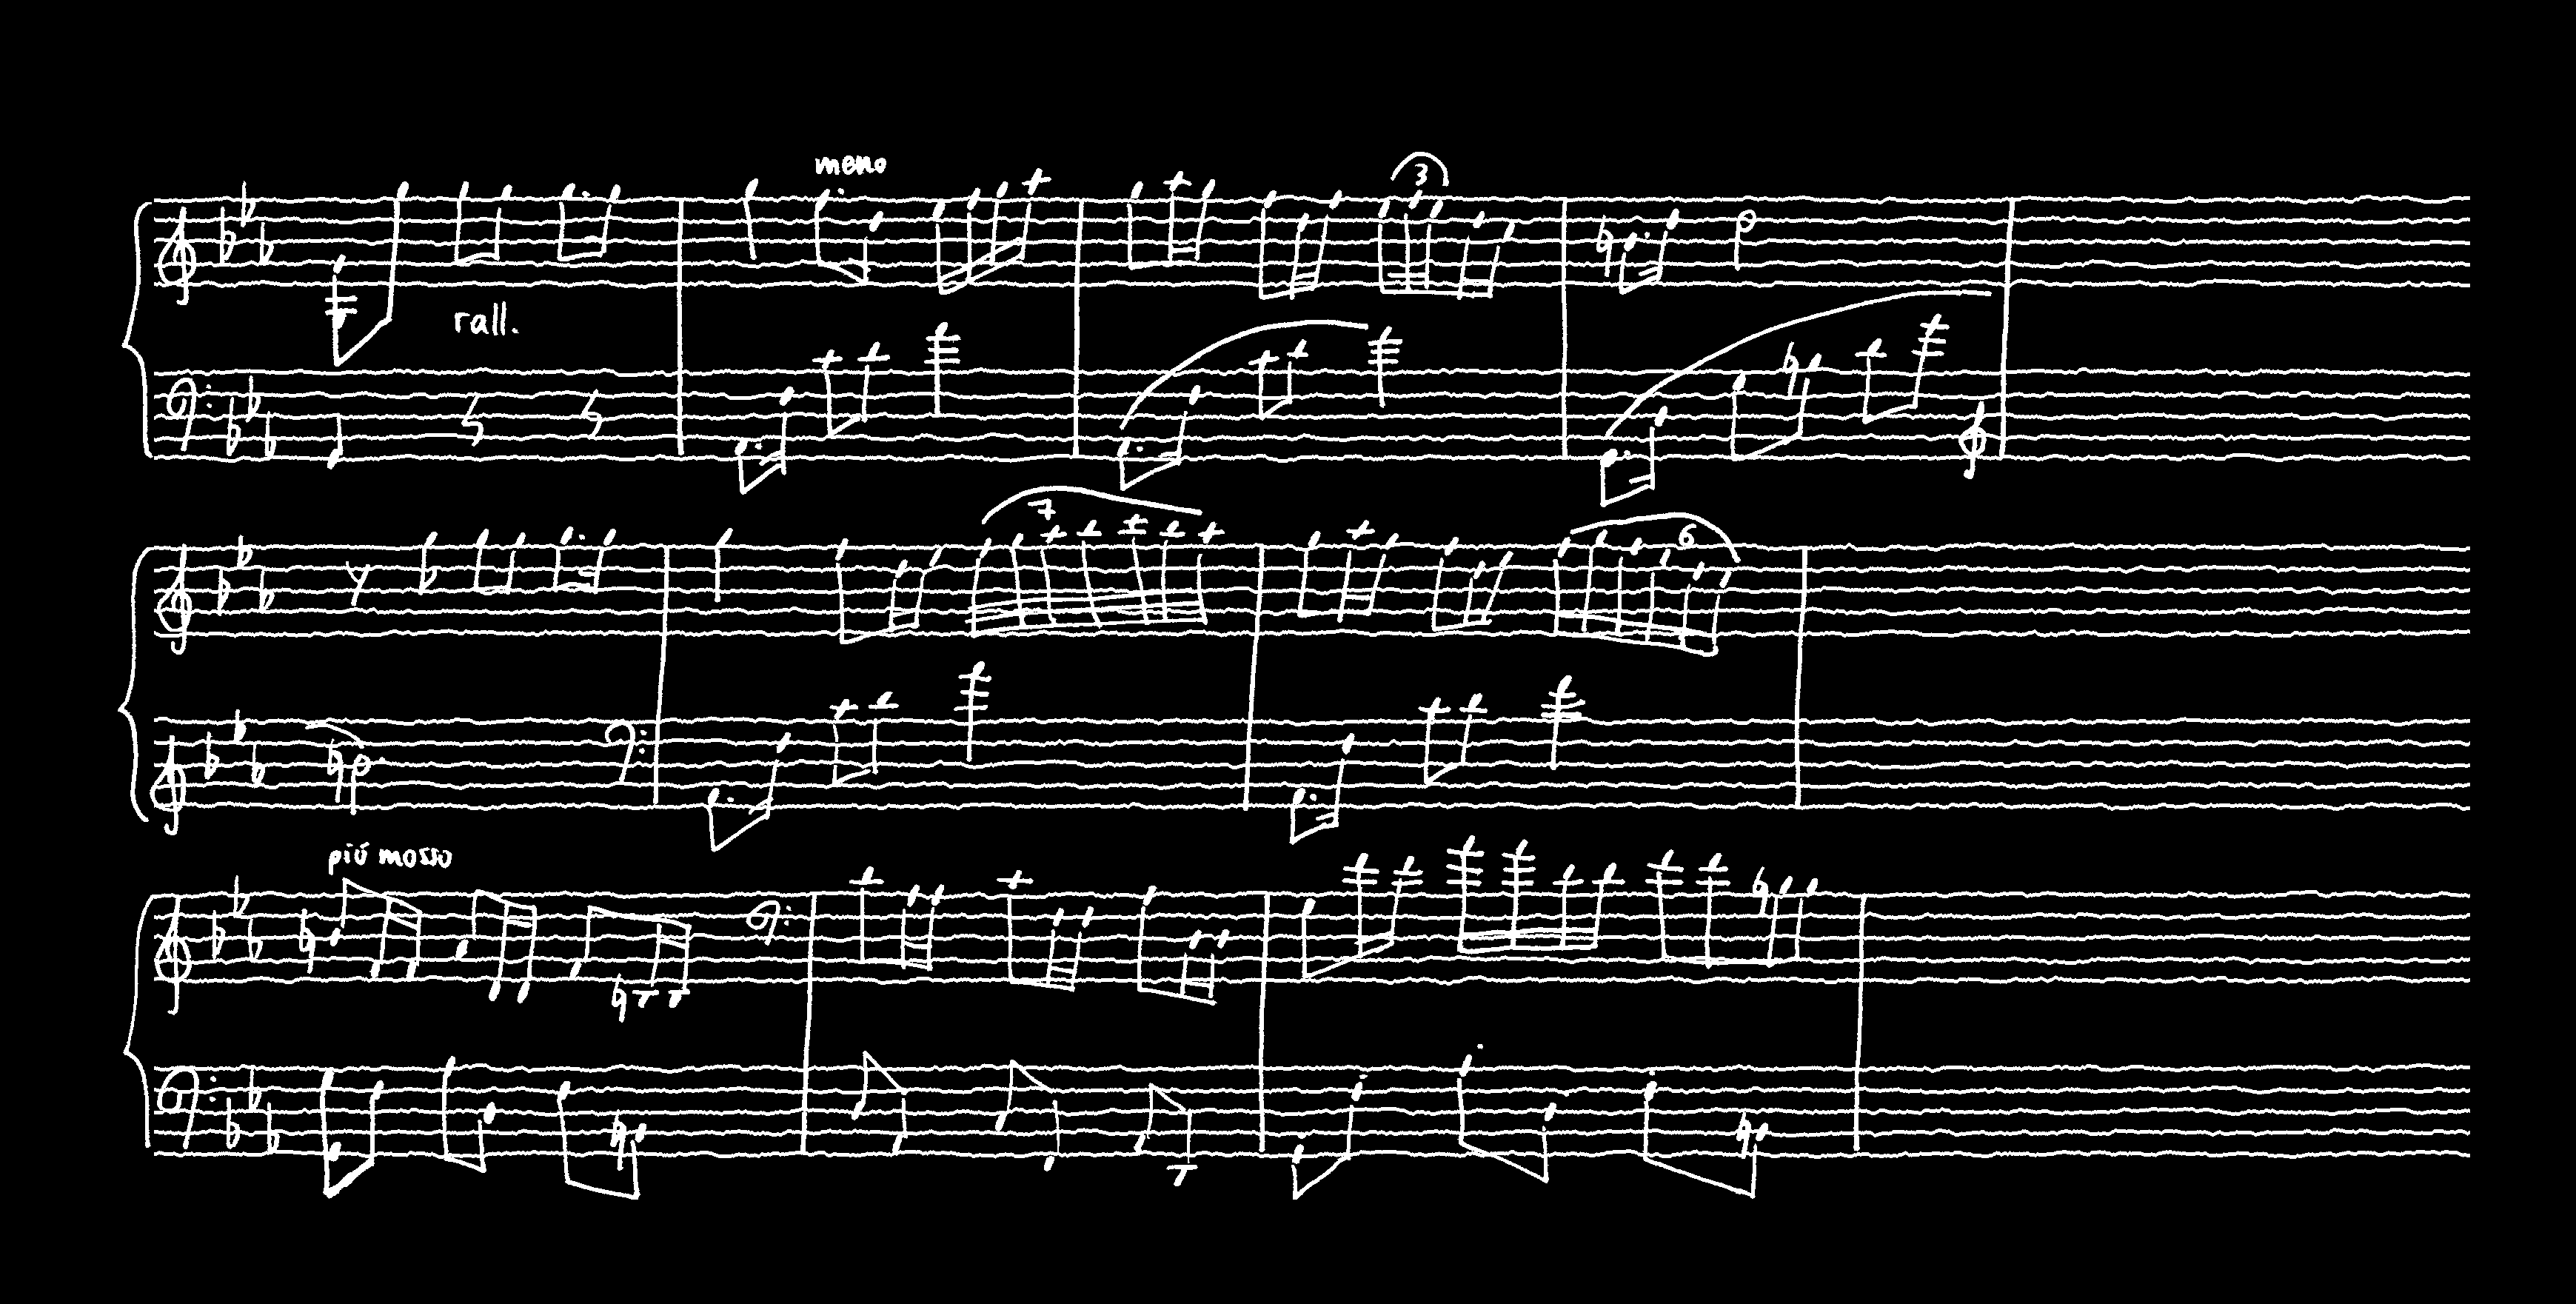 meno
3
rall.
7
6
più mosso